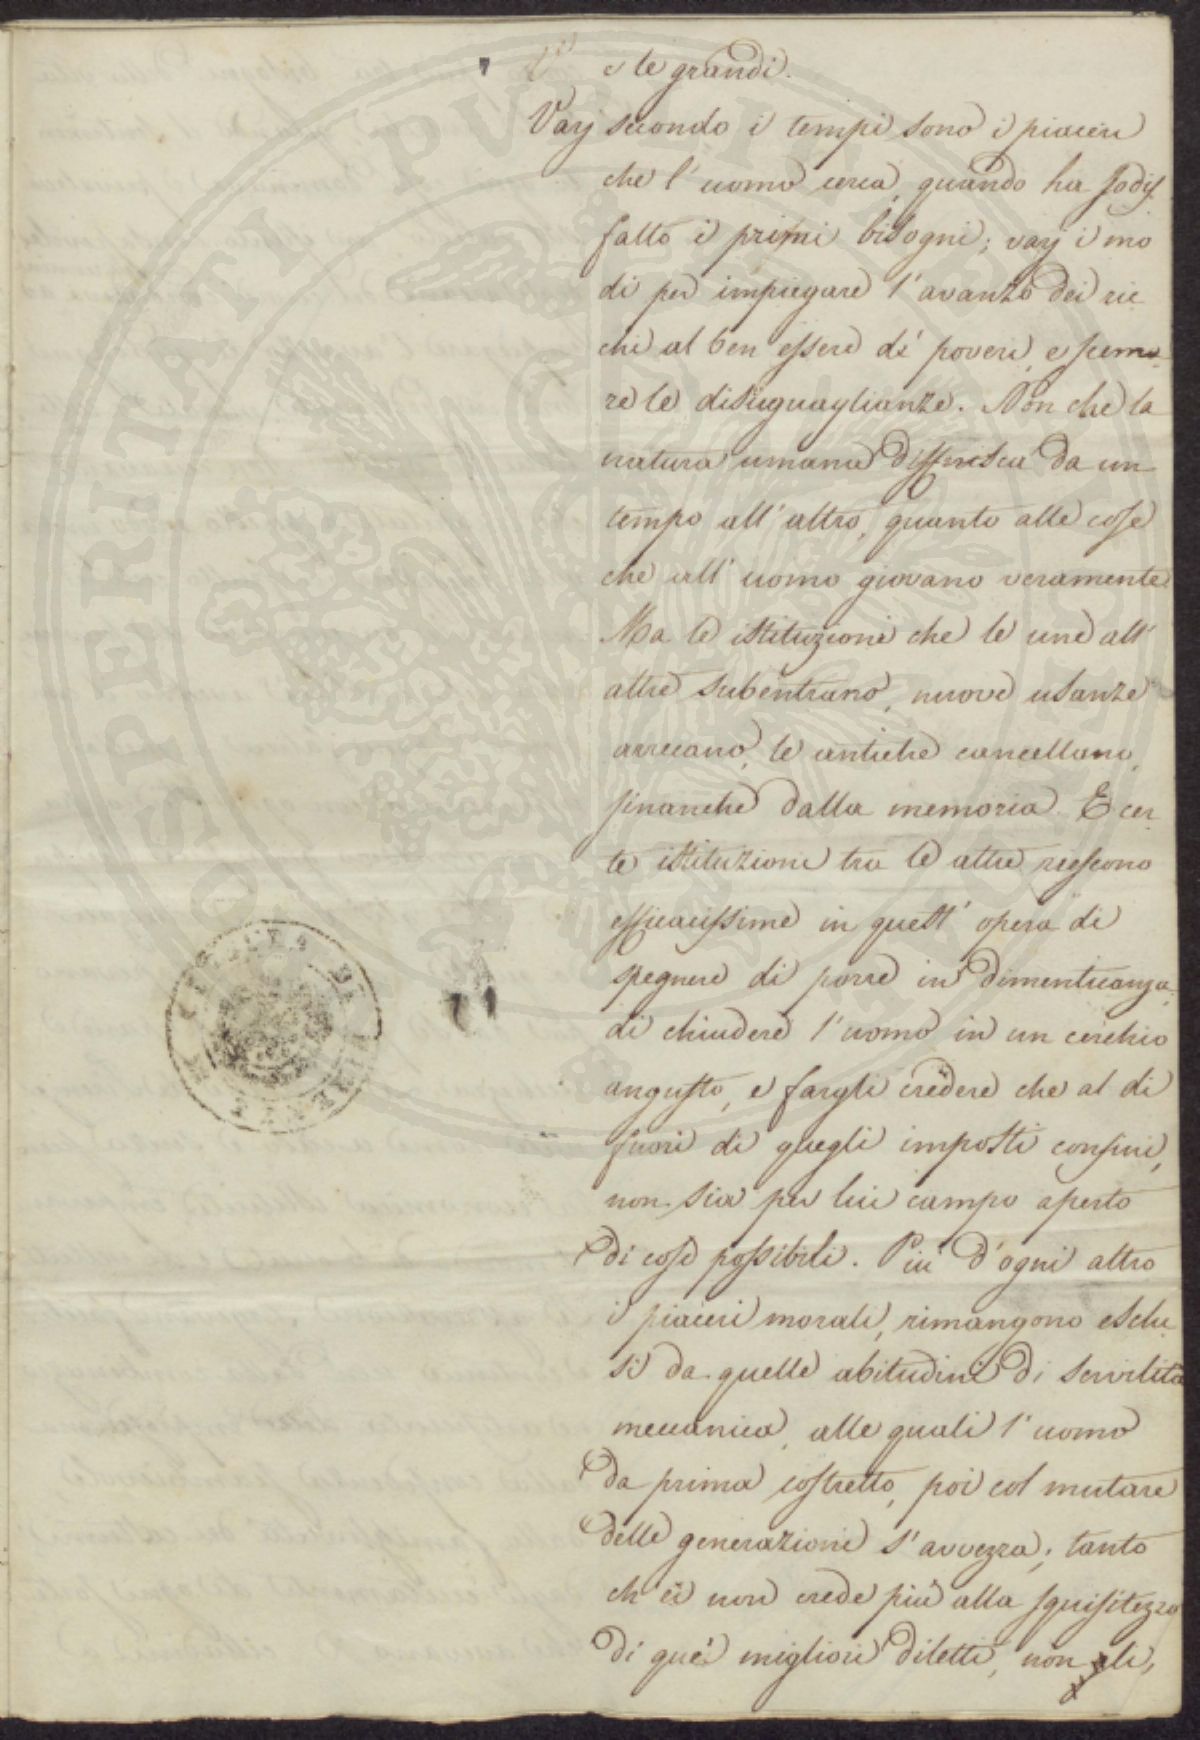 e le grandi.
Varj secondo i tempi sono i piaceri
che l'uomo cerca, quando ha sodis
fatto i primi bisogni; varj i mo
di per impiegare l'avanzo dei ric
chi al ben essere de' poveri, e scema-
re le disuguaglianze. Non che la
natura umana differisca da un
tempo all'altro, quanto alle cose
che all'uomo giovano veramente
Ma le istituzioni che le une all'
altre subentrano, nuove usanze
arrecano, le antiche cancellano,
finanche dalla memoria. E cer-
te istituzioni tra le altre riescono
efficacissime in quest'opera di
spegnere di porre in dimenticanza,
di chiudere l'uomo in un cerchio
angusto, e fargli credere che al di
fuori di quegli imposti confini,
non sia per lui campo aperto
di cose possibili. Più d'ogni altro
i piaceri morali, rimangono esclu-
si da quelle abitudini di servilità
meccanica, alle quali l'uomo
da prima costretto, poi col mutare
delle generazioni s'avvezza; tanto
ch'ei non crede più alla squisitezza
di que' migliori diletti, non
SOSPERITATI PVBLICAE